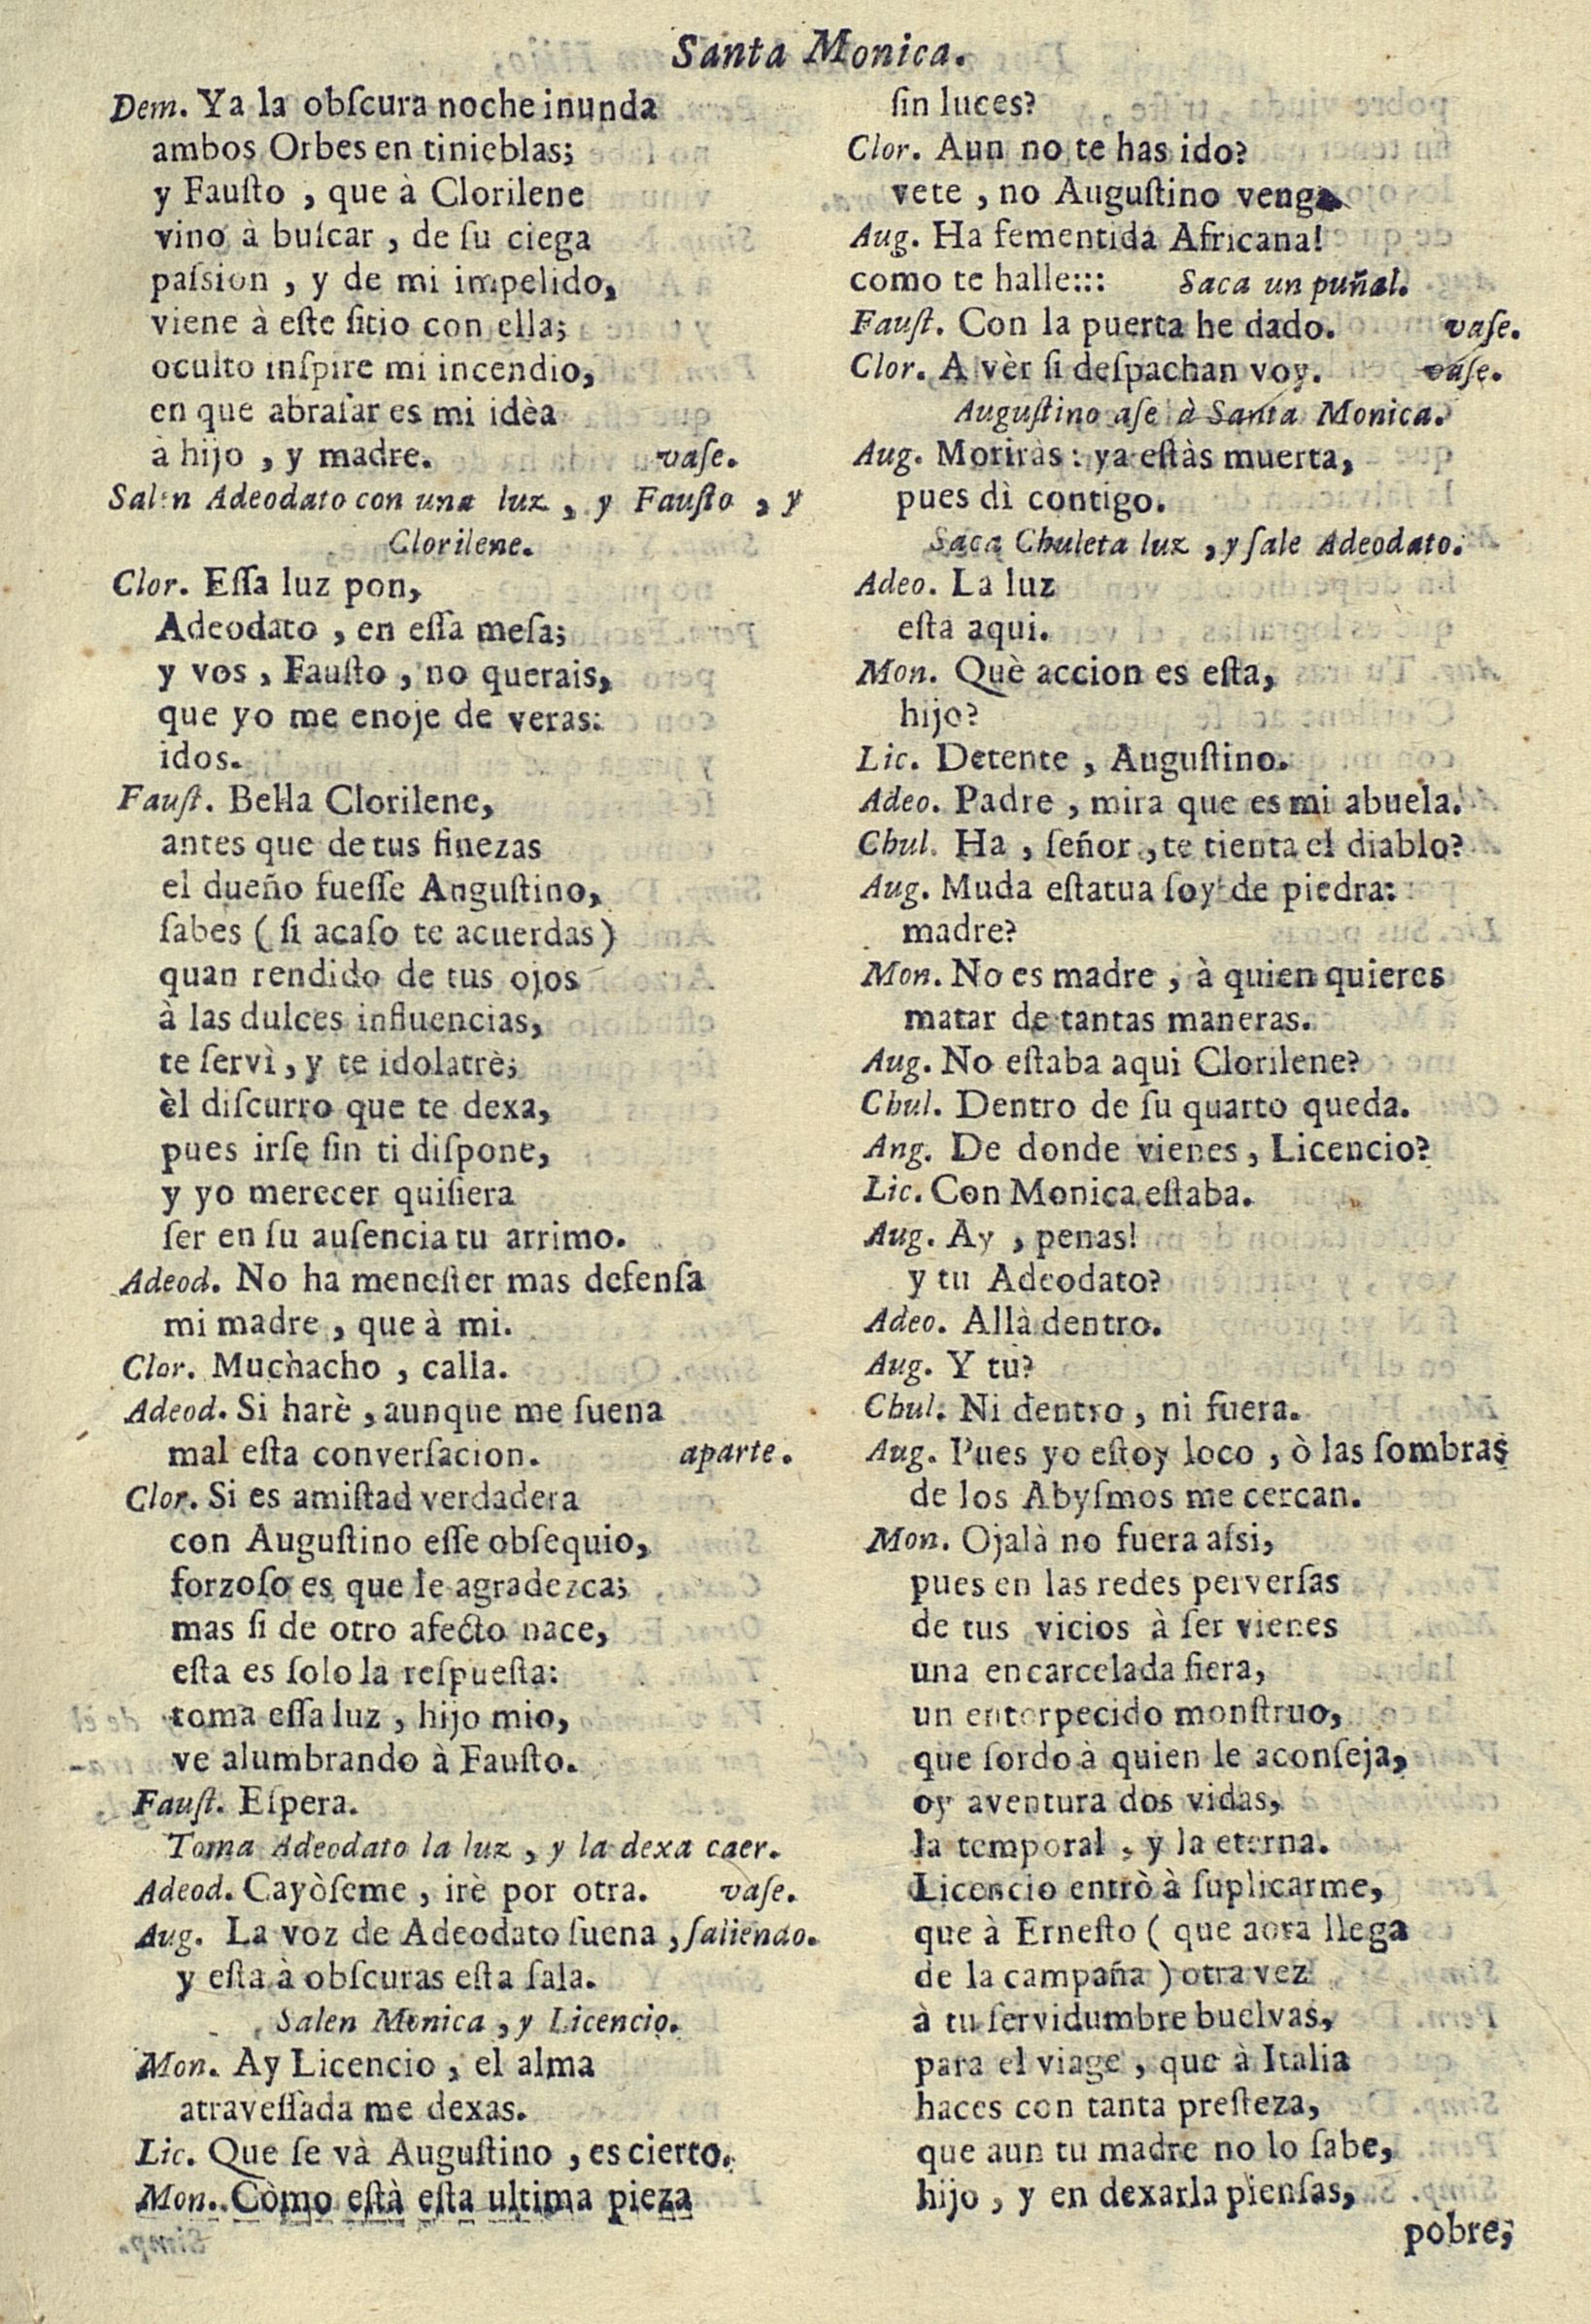 Santa Monica.
Dem. Ya la obſcura noche inunda
ambos Orbes en tinieblas;
y Fauſto , que à Clorilene
vino à buſcar , de ſu ciega
paſsion , y de mi impelido,
viene à eſte ſitio con ella;
oculto inſpire mi incendio,
en que abraſar es mi idèa
à hijo , y madre. vaſe.
Salen Adeodato con una luz , y Fauſto , y
Clorilene.
Clor. Eſſa luz pon,
Adeodato , en eſſa meſa;
y vos , Fauſto , no querais,
que yo me enoje de veras:
idos.
Fauſt. Bella Clorilene,
antes que de tus finezas
el dueño fueſſe Anguſtino,
ſabes ( ſi acaſo te acuerdas )
quan rendido de tus ojos
à las dulces influencias,
te ſervì, y te idolatrè;
èl diſcurro que te dexa,
pues irſe ſin ti diſpone,
y yo merecer quiſiera
ſer en ſu auſencia tu arrimo.
Adeod. No ha meneſter mas defenſa
mi madre , que à mi.
Clor. Muchacho , calla.
Adeod. Si harè , aunque me ſuena
mal eſta converſacion. aparte.
Clor. Si es amiſtad verdadera
con Auguſtino eſſe obſequio,
forzoſo es que le agradezca;
mas ſi de otro afecto nace,
eſta es ſolo la reſpueſta:
toma eſſa luz , hijo mio,
ve alumbrando à Fauſto.
Fauſt. Eſpera.
Toma Adeodato la luz , y la dexa caer.
Adeod. Cayòſeme , irè por otra. vaſe.
Aug. La voz de Adeodato ſuena , ſaliendo.
y eſta à obſcuras eſta ſala.
Salen Monica , y Licencio.
Mon. Ay Licencio , el alma
atraveſſada me dexas.
Lic. Que ſe và Auguſtino , es cierto.
Mon. Còmo eſtà eſta ultima pieza
ſin luces?
Clor. Aun no te has ido?
vete , no Auguſtino venga.
Aug. Ha fementida Africana!
como te halle::: Saca un puñal.
Fauſt. Con la puerta he dado. vaſe.
Clor. A vèr ſi deſpachan voy. vaſe.
Auguſtino aſe à Santa Monica.
Aug. Moriràs: ya eſtàs muerta,
pues dì contigo.
Saca Chuleta luz , y ſale Adeodato.
Adeo. La luz
eſta aqui.
Mon. Què accion es eſta,
hijo?
Lic. Detente , Auguſtino.
Adeo. Padre , mira que es mi abuela.
Chul. Ha , ſeñor , te tienta el diablo?
Aug. Muda eſtatua ſoy de piedra:
madre?
Mon. No es madre , à quien quieres
matar de tantas maneras.
Aug. No eſtaba aqui Clorilene?
Chul. Dentro de ſu quarto queda.
Ang. De donde vienes , Licencio?
Lic. Con Monica eſtaba.
Aug. Ay , penas!
y tu Adeodato?
Adeo. Allà dentro.
Aug. Y tù?
Chul. Ni dentro , ni fuera.
Aug. Pues yo eſtoy loco , ò las ſombras
de los Abyſmos me cercan.
Mon. Ojalà no fuera aſsi,
pues en las redes perverſas
de tus vicios à ſer vienes
una encarcelada fiera,
un entorpecido monſtruo,
que ſordo à quien le aconſeja,
oy aventura dos vidas,
la temporal , y la eterna.
Licencio entrò à ſuplicarme,
que à Erneſto ( que aora llega
de la campaña ) otra vez
à tu ſervidumbre buelvas,
para el viage , que à Italia
haces con tanta preſteza,
que aun tu madre no lo ſabe,
hijo , y en dexarla pienſas,
pobre;